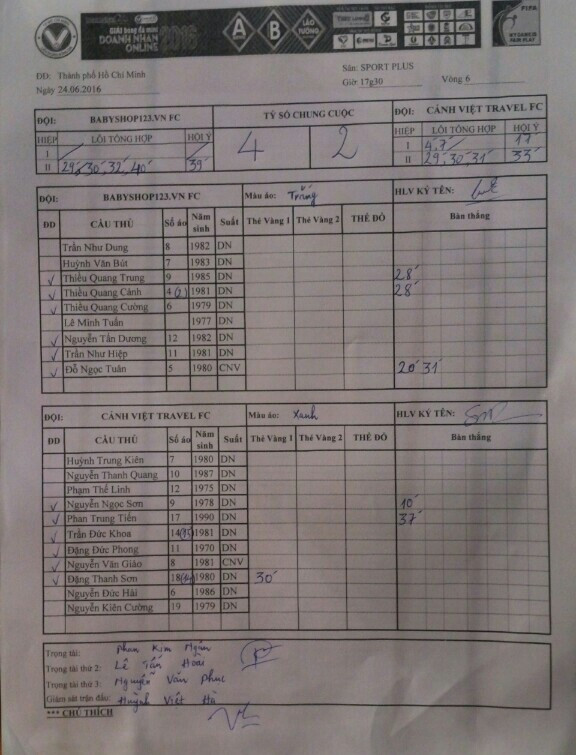 GIẢI bóng đá mini
DOANH NHÂN
ONLINE 2016
A B LÃO TƯỚNG
FIFA
MY GAME IS
FAIR PLAY
ĐĐ: Thành phố Hồ Chí Minh Sân: SPORT PLUS
Ngày 24.06.2016 Giờ 17g30 Vòng 6
ĐỘI: BABYSHOP123.VN FC TỶ SỐ CHUNG CUỘC ĐỘI: CẢNH VIỆT TRAVEL FC
HIỆP LỖI TỔNG HỢP HỘI Ý 4 2 HIỆP LỖI TỔNG HỢP HỘI Ý
I I 4', 7' 11'
II 29' 30', 32', 40' 39' II 29', 30', 31' 33'
ĐỘI: BABYSHOP123.VN FC Màu áo: Trắng HLV KÝ TÊN:
ĐD CẦU THỦ Số áo Năm sinh Suất Thẻ Vàng 1 Thẻ Vàng 2 THẺ ĐỎ Bàn thắng
Trần Như Dung 8 1982 DN
Huỳnh Văn Bút 7 1983 DN
✓ Thiều Quang Trung 9 1985 DN 28'
✓ Thiều Quang Cảnh 4 1981 DN 28'
✓ Thiều Quang Cường 6 1979 DN
Lê Minh Tuấn 1977 DN
✓ Nguyễn Tấn Dương 12 1982 DN
✓ Trần Như Hiệp 11 1981 DN
✓ Đỗ Ngọc Tuân 5 1980 CNV 20' 31'
ĐỘI: CẢNH VIỆT TRAVEL FC Màu áo: Xanh HLV KÝ TÊN:
ĐD CẦU THỦ Số áo Năm sinh Suất Thẻ Vàng 1 Thẻ Vàng 2 THẺ ĐỎ Bàn thắng
Huỳnh Trung Kiên 7 1980 DN
Nguyễn Thanh Quang 10 1987 DN
Phạm Thế Linh 12 1975 DN
✓ Nguyễn Ngọc Sơn 9 1978 DN 10'
✓ Phan Trung Tiến 17 1990 DN 37'
✓ Trần Đức Khoa 14 1981 DN
✓ Đặng Đức Phong 11 1970 DN
✓ Nguyễn Văn Giáo 8 1981 CNV
✓ Đặng Thanh Sơn 18 1980 DN 30'
Nguyễn Đức Hải 6 1986 DN
Nguyễn Kiên Cường 19 1979 DN
Trọng tài: Phan Kim Ngân
Trọng tài thứ 2: Lê Tấn Hoài
Trọng tài thứ 3: Nguyễn Văn Phục
Giám sát trận đấu: Huỳnh Viết Hà
*** CHÚ THÍCH